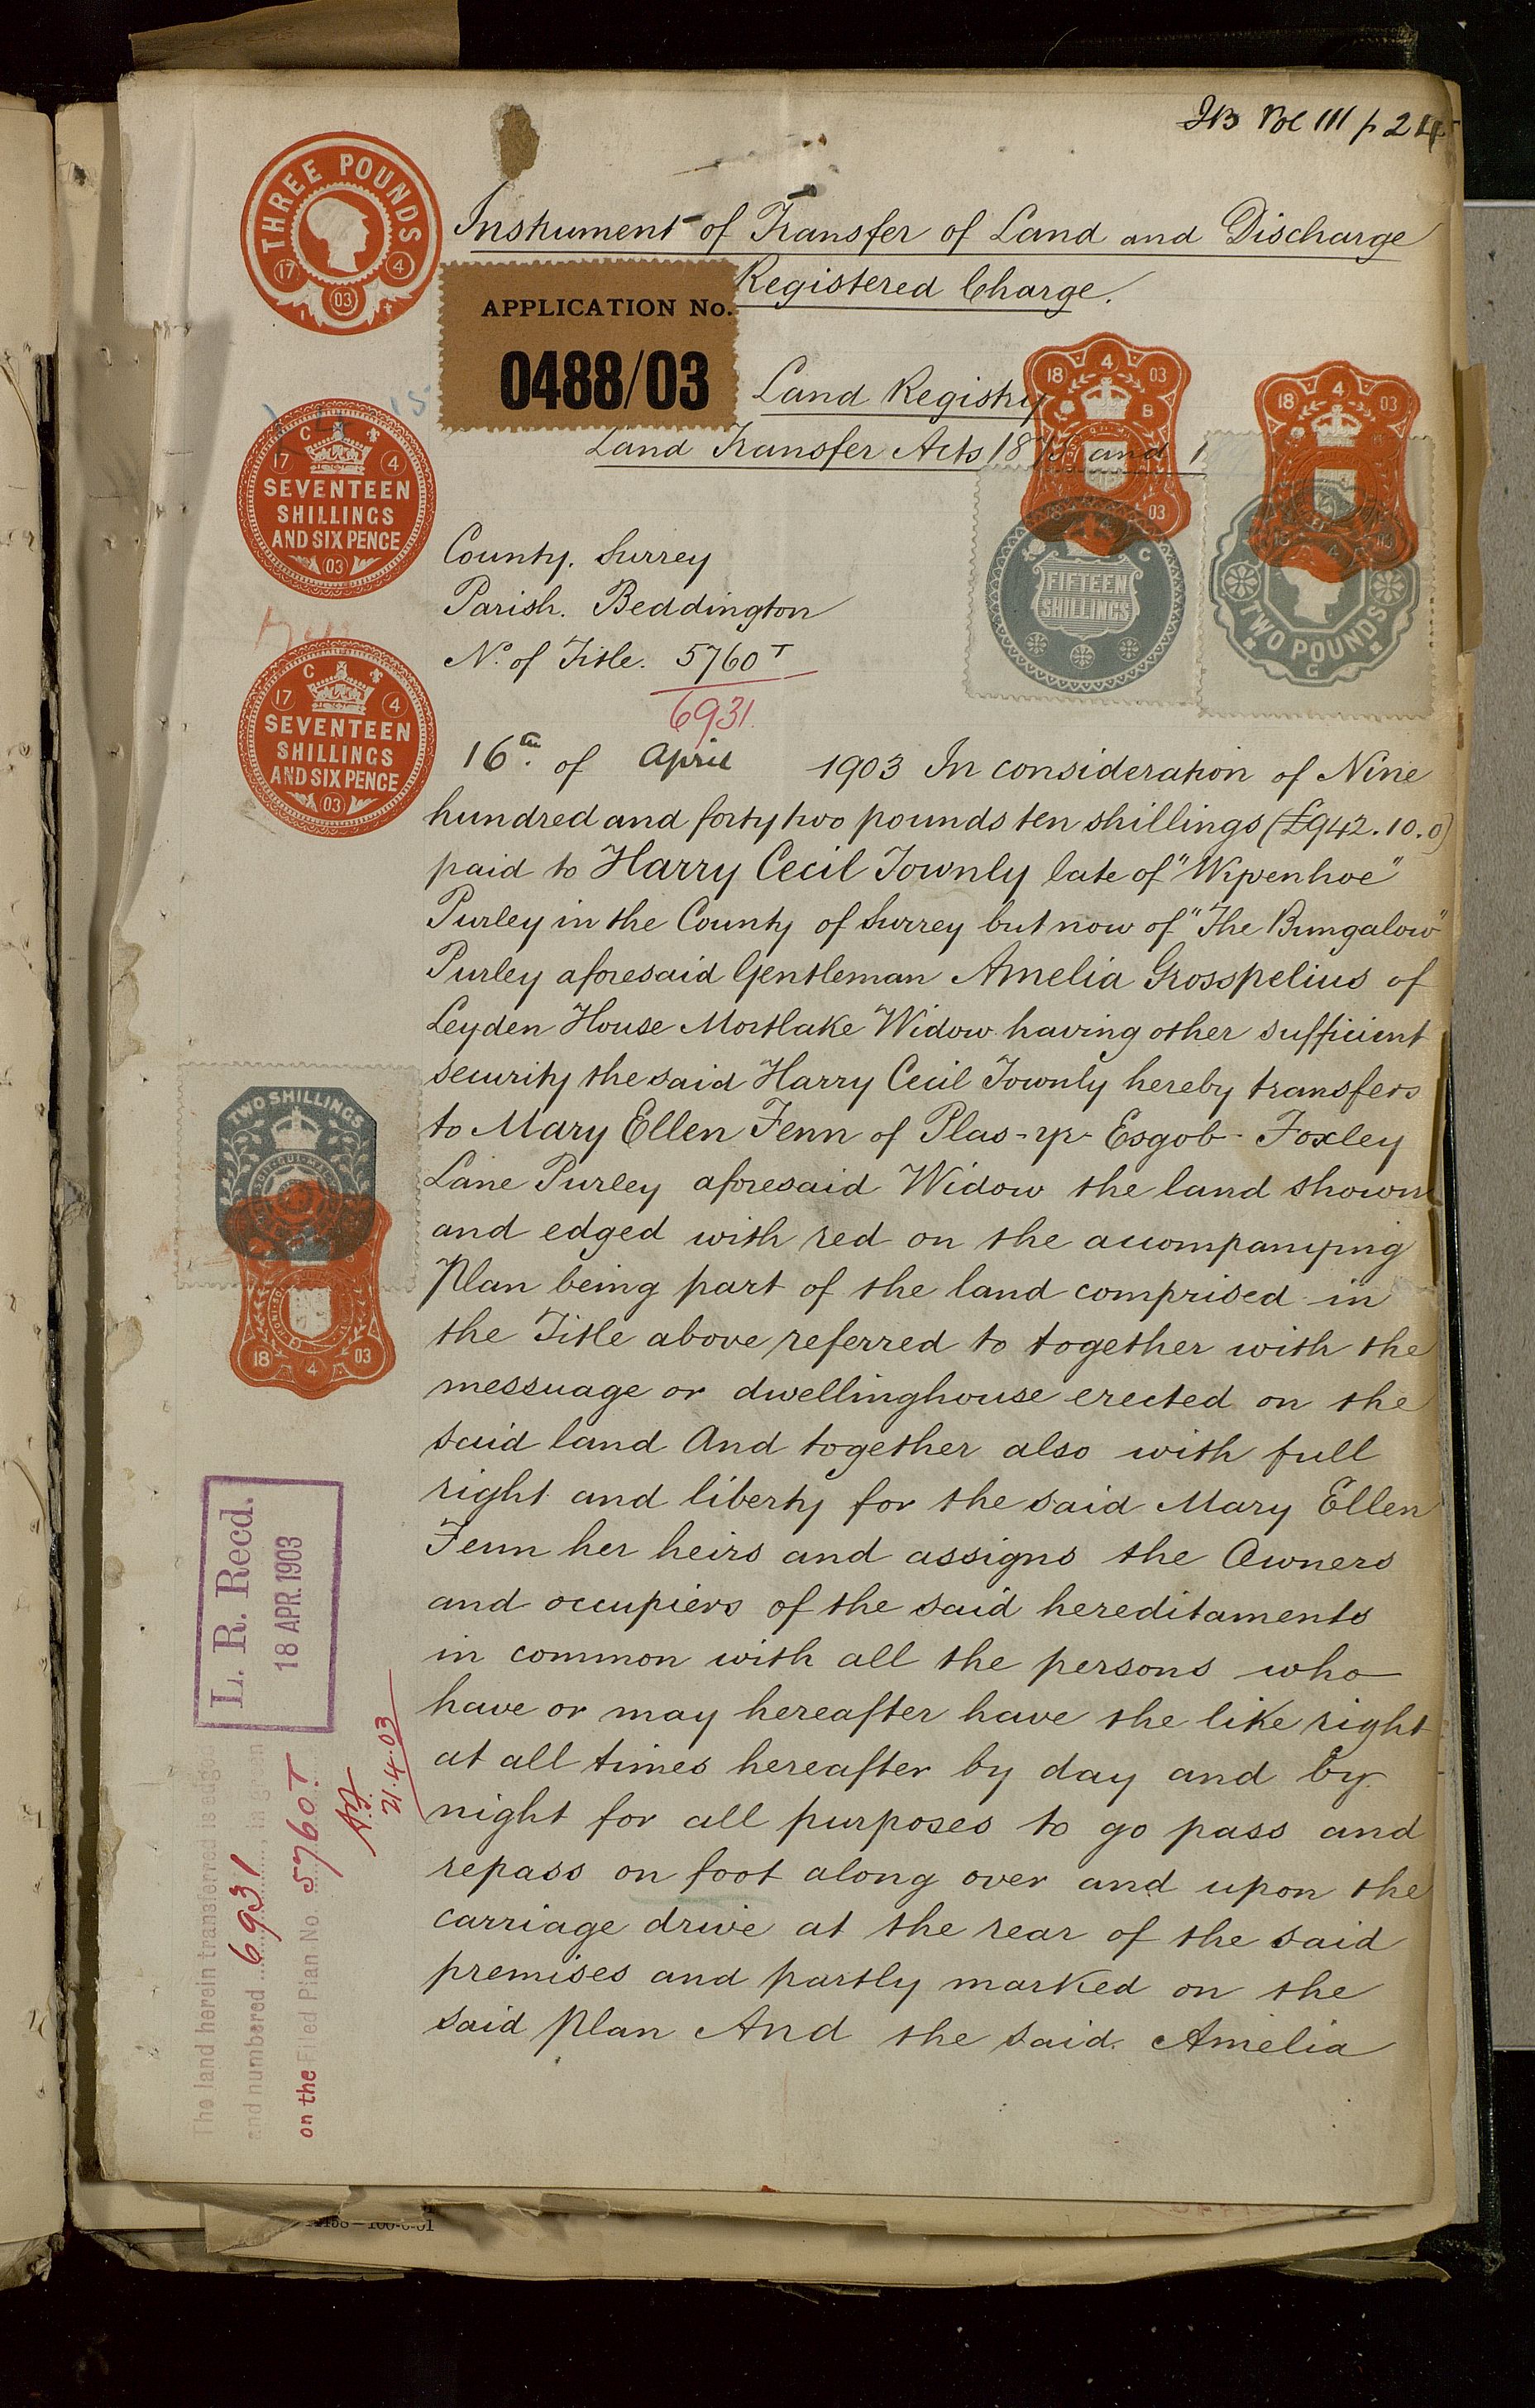 JB Vol III p 24
THREE POUNDS
17 4
03
Instrument of Transfer of Land and Discharge
Registered Charge.
APPLICATION No.
0488/03
Land Registry
Land Transfer Acts 1875 and 1
18 4 03
B
03
18 4 03
18 4 03
C
FIFTEEN
SHILLINGS
TWO POUNDS
G
C
17 4
SEVENTEEN
SHILLINGS
AND SIX PENCE
03
County. Surrey
Parish. Beddington
No. of Title. 5760 T
6931.
C
17 4
SEVENTEEN
SHILLINGS
AND SIX PENCE
03
16th. of April 1903 In consideration of Nine
hundred and forty two pounds ten shillings (£942.10.0)
paid to Harry Cecil Townly late of "Wivenhoe"
Purley in the County of Surrey but now of "The Bungalow"
Purley aforesaid Gentleman Amelia Grosspelius of
Leyden House Mortlake Widow having other sufficient
security the said Harry Cecil Townly hereby transfers
to Mary Ellen Fenn of Plas-yr-Esgob-Foxley
Lane Purley aforesaid Widow the land shown
and edged with red on the accompanying
Plan being part of the land comprised in
the Title above referred to together with the
messuage or dwellinghouse erected on the
said land And together also with full
right and liberty for the said Mary Ellen
Fenn her heirs and assigns the Owners
and occupiers of the said hereditaments
in common with all the persons who
have or may hereafter have the like right
at all times hereafter by day and by
night for all purposes to go pass and
repass on foot along over and upon the
carriage drive at the rear of the said
premises and partly marked on the
said plan And the said Amelia
TWO SHILLINGS
18 4 03
L. R. Recd.
18 APR. 1903
The land herein transferred is edged
and numbered 6931, in green
on the Filed Plan No. 5760 T.
21.4.03